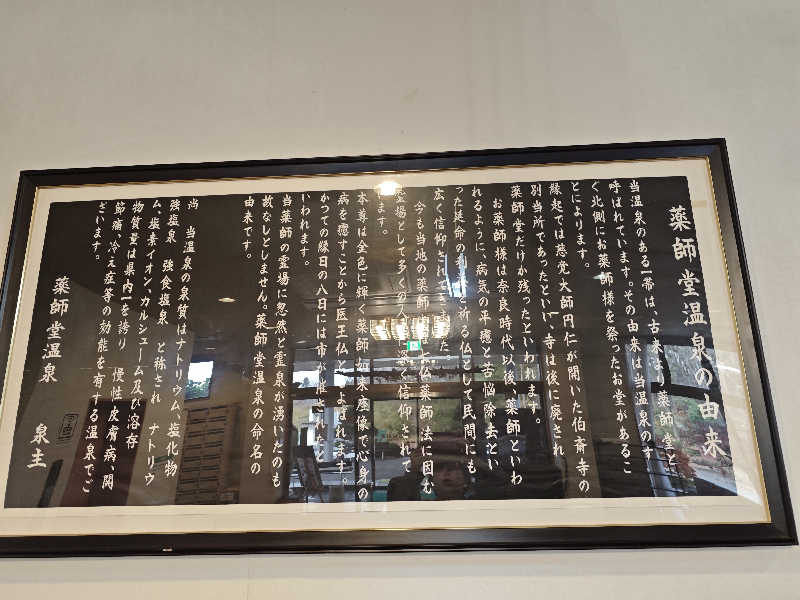 薬師堂温泉の由来
当温泉のある一帯は、古来より薬師堂と
呼ばれています。その由来は当温泉のす
ぐ北側にお薬師様を祭ったお堂があるこ
とによります。
縁起では慈覚大師円仁が開いた伯斎寺の
別当所であったといい、寺は後に廃され
薬師堂だけが残ったといわれます。
お薬師様は奈良時代以後、薬師といわ
れるように、病気の平癒と苦悩除去とい
った延命の利 を祈る仏として民間にも
広く信仰されてきました。
今も当地の薬師 七仏薬師法に因む
霊場として多くの人 に深く信仰されて
います。
本尊は金色に輝く薬師如来座像で心身の
病を癒すことから医王仏 よばれます。
かつての縁日の八日には市が催されたと
いわれます。
当薬師の霊場に忽然と霊泉が湧いたのも
故なしとしません。薬師堂温泉の命名の
由来です。
尚 当温泉の泉質はナトリウム、塩化物
強塩泉 強食塩泉 と称され ナトリウ
ム、塩素イオン、カルシューム及び溶存
物質量は県内一を誇り 慢性皮膚病、関
節痛、冷え症等の効能を有する温泉でご
ざいます。
薬師堂温泉
泉主